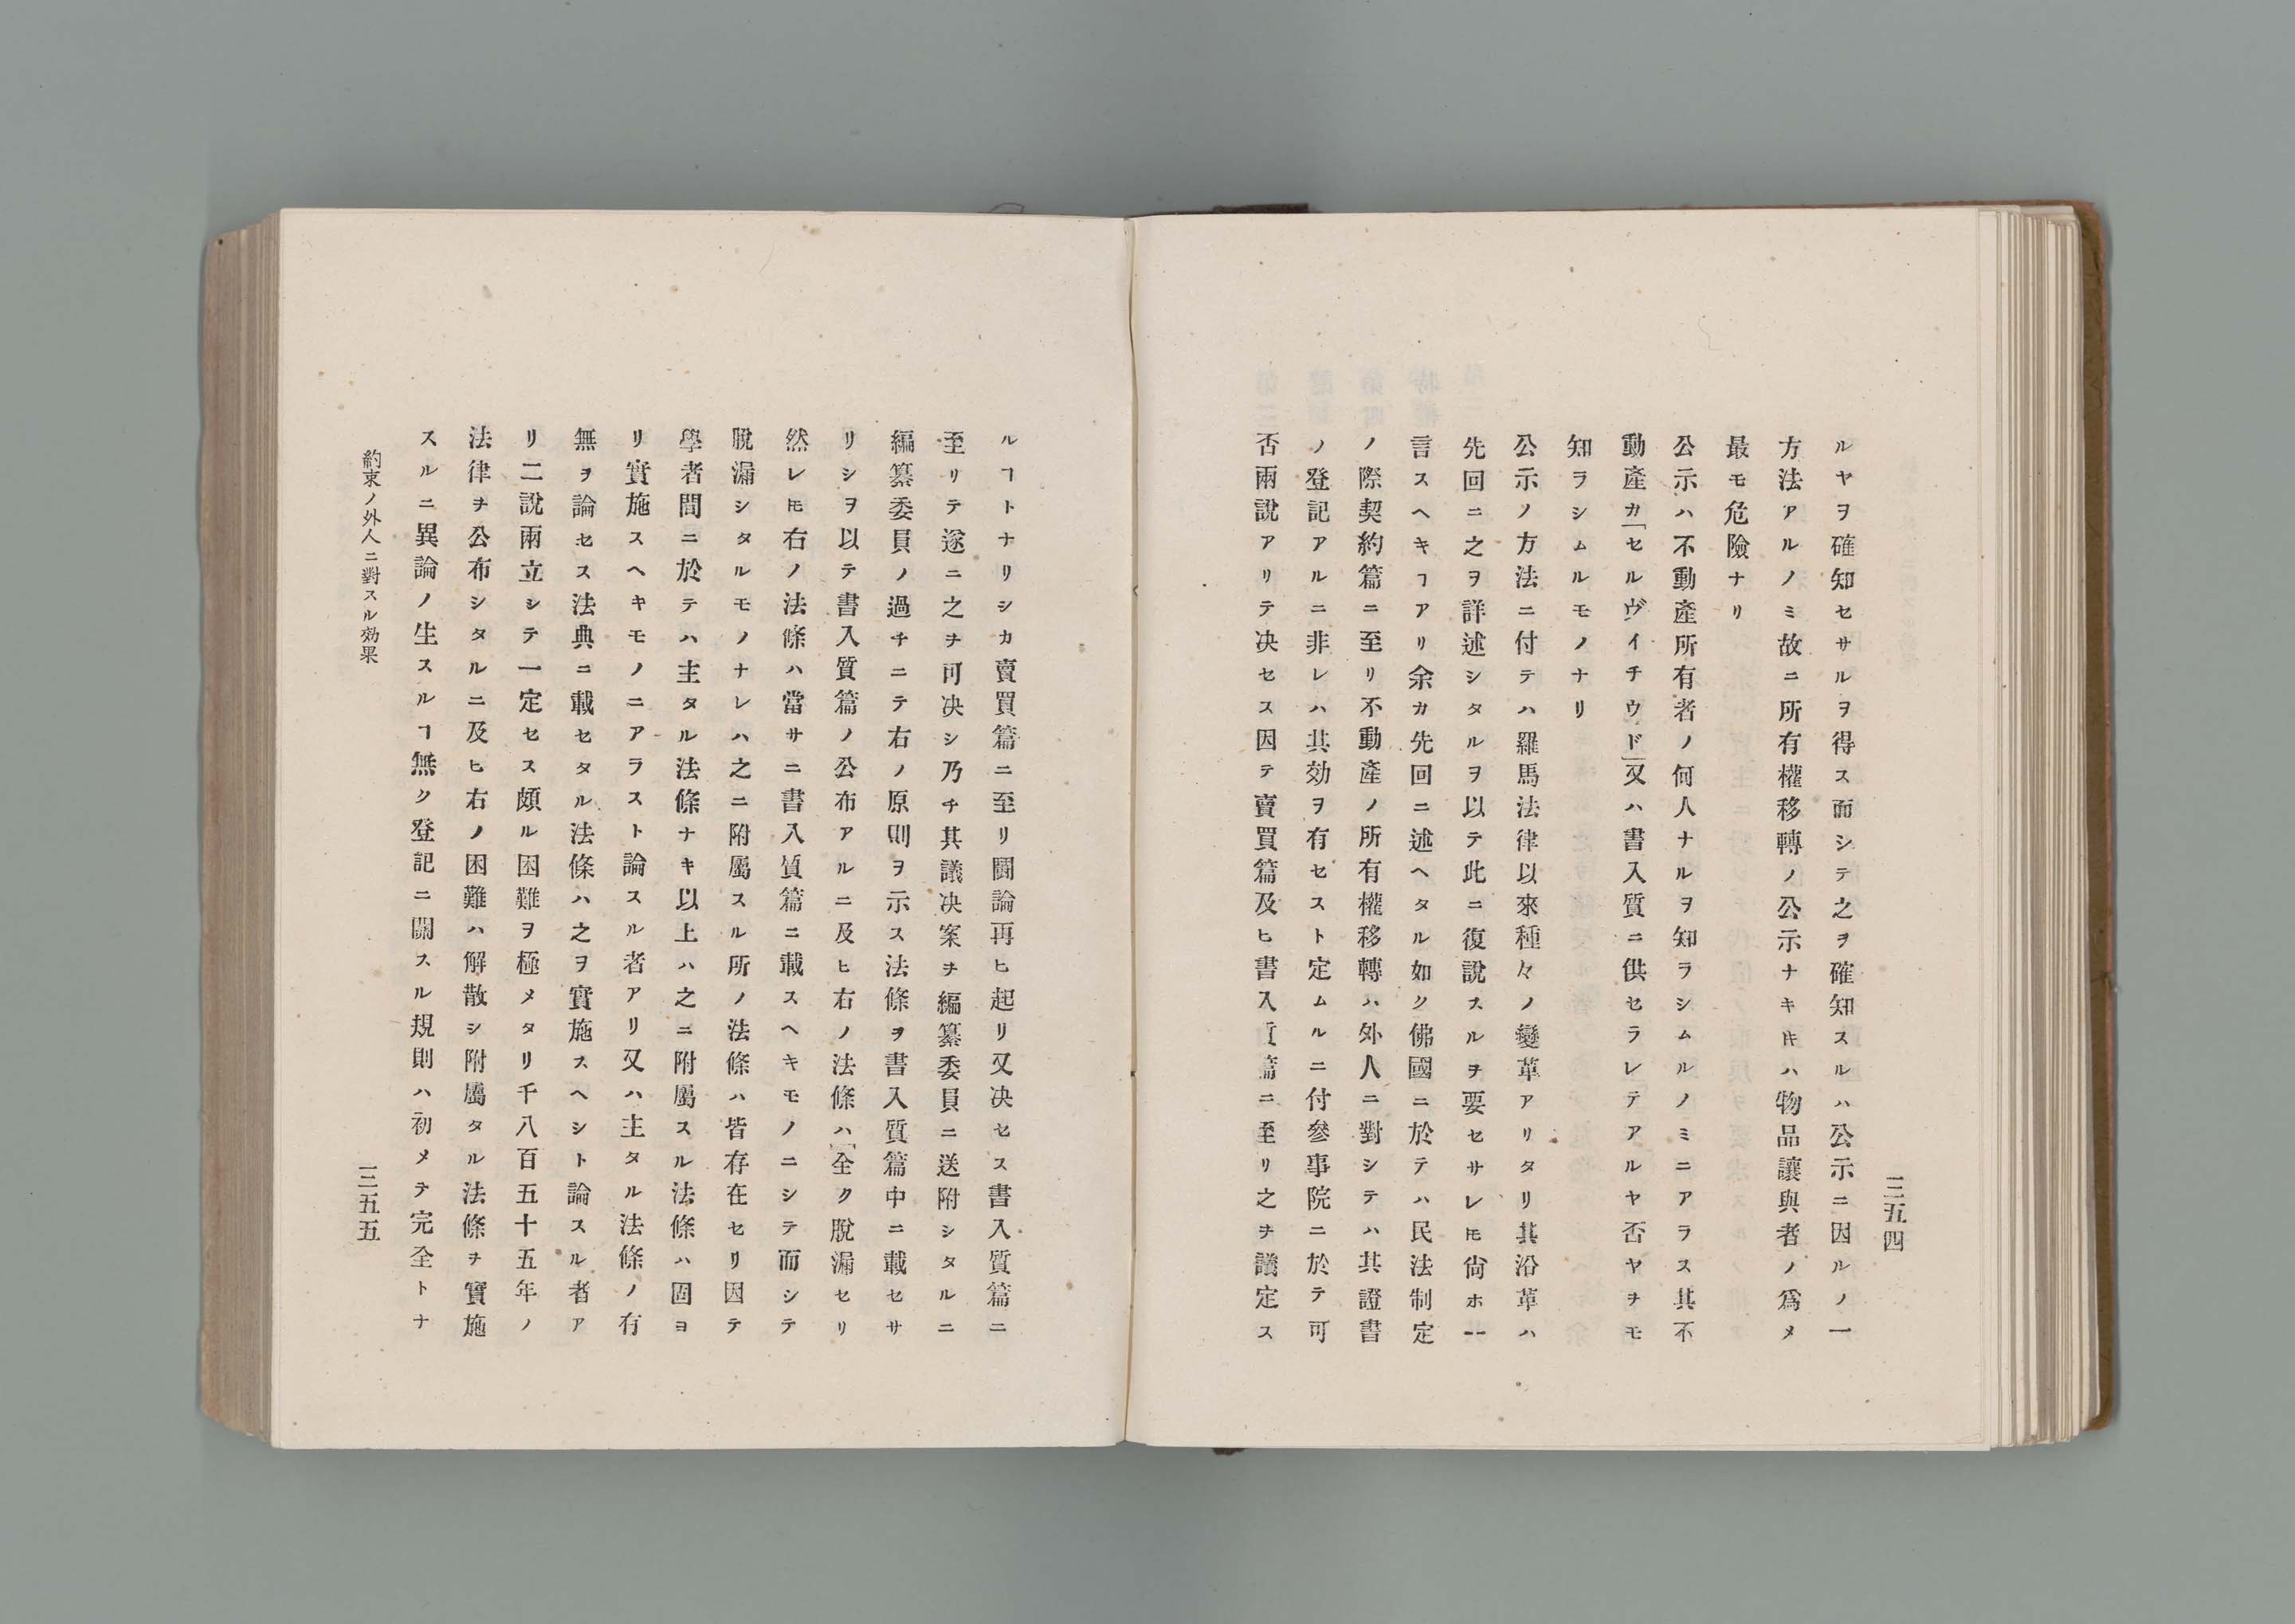 三五四
ルヤヲ確知セサルヲ得ス而シテ之ヲ確知スルハ公示ニ因ルノ一
方法アルノミ故ニ所有權移轉ノ公示ナキ𪜈ハ物品讓與者ノ爲メ
最モ危險ナリ
公示ハ不動產所有者ノ何人ナルヲ知ラシムルノミニアラス其不
動產カ「セルヴイチウド」又ハ書入質ニ供セラレテアルヤ否ヤヲモ
知ラシムルモノナリ
公示ノ方法ニ付テハ羅馬法律以來種々ノ變革アリタリ其沿革ハ
先回ニ之ヲ詳述シタルヲ以テ此ニ復說スルヲ要セサレ𪜈尙ホ一
言スヘキヿアリ余カ先回ニ述ヘタル如ク佛國ニ於テハ民法制定
ノ際契約篇ニ至リ不動產ノ所有權移轉ハ外人ニ對シテハ其證書
ノ登記アルニ非レハ其効ヲ有セスト定ムルニ付參事院ニ於テ可
否兩說アリテ决セス因テ賣買篇及ヒ書入質篇ニ至リ之ヲ議定ス
ルヿトナリシカ賣買篇ニ至リ鬪論再ヒ起リ又决セス書入質篇ニ
至リテ遂ニ之ヲ可决シ乃チ其議决案ヲ編纂委員ニ送附シタルニ
編纂委員ノ過チニテ右ノ原則ヲ示ス法條ヲ書入質篇中ニ載セサ
リシヲ以テ書入質篇ノ公布アルニ及ヒ右ノ法條ハ「全ク脫漏セリ
然レ𪜈右ノ法條ハ當サニ書入質篇ニ載スヘキモノニシテ而シテ
脫漏シタルモノナレハ之ニ附屬スル所ノ法條ハ皆存在セリ因テ
學者間ニ於テハ主タル法條ナキ以上ハ之ニ附屬スル法條ハ固ヨ
リ實施スヘキモノニアラスト論スル者アリ又ハ主タル法條ノ有
無ヲ論セス法典ニ載セタル法條ハ之ヲ實施スヘシト論スル者ア
リ二說兩立シテ一定セス頗ル困難ヲ極メタリ千八百五十五年ノ
法律ヲ公布シタルニ及ヒ右ノ困難ハ解散シ附屬タル法條ヲ實施
スルニ異論ノ生スルヿ無ク登記ニ關スル規則ハ初メテ完全トナ
約束ノ外人ニ對スル効果
三五五